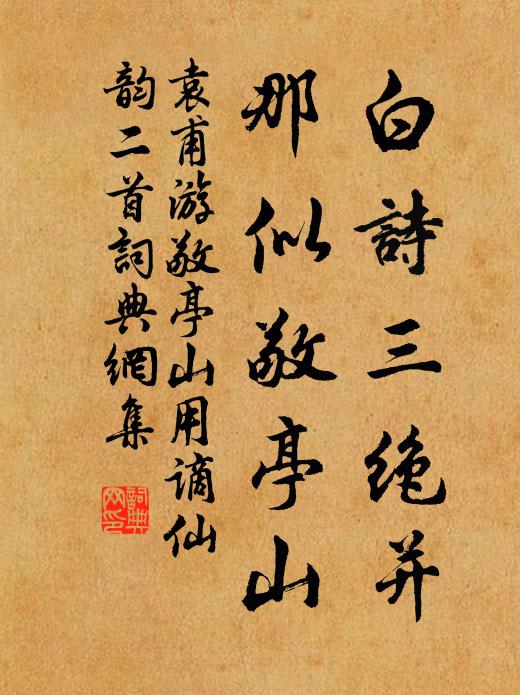 白詩三絶并
那似敬亭山
袁甫游敬亭山用謫仙
韵二首詞典網集
詞典
网印